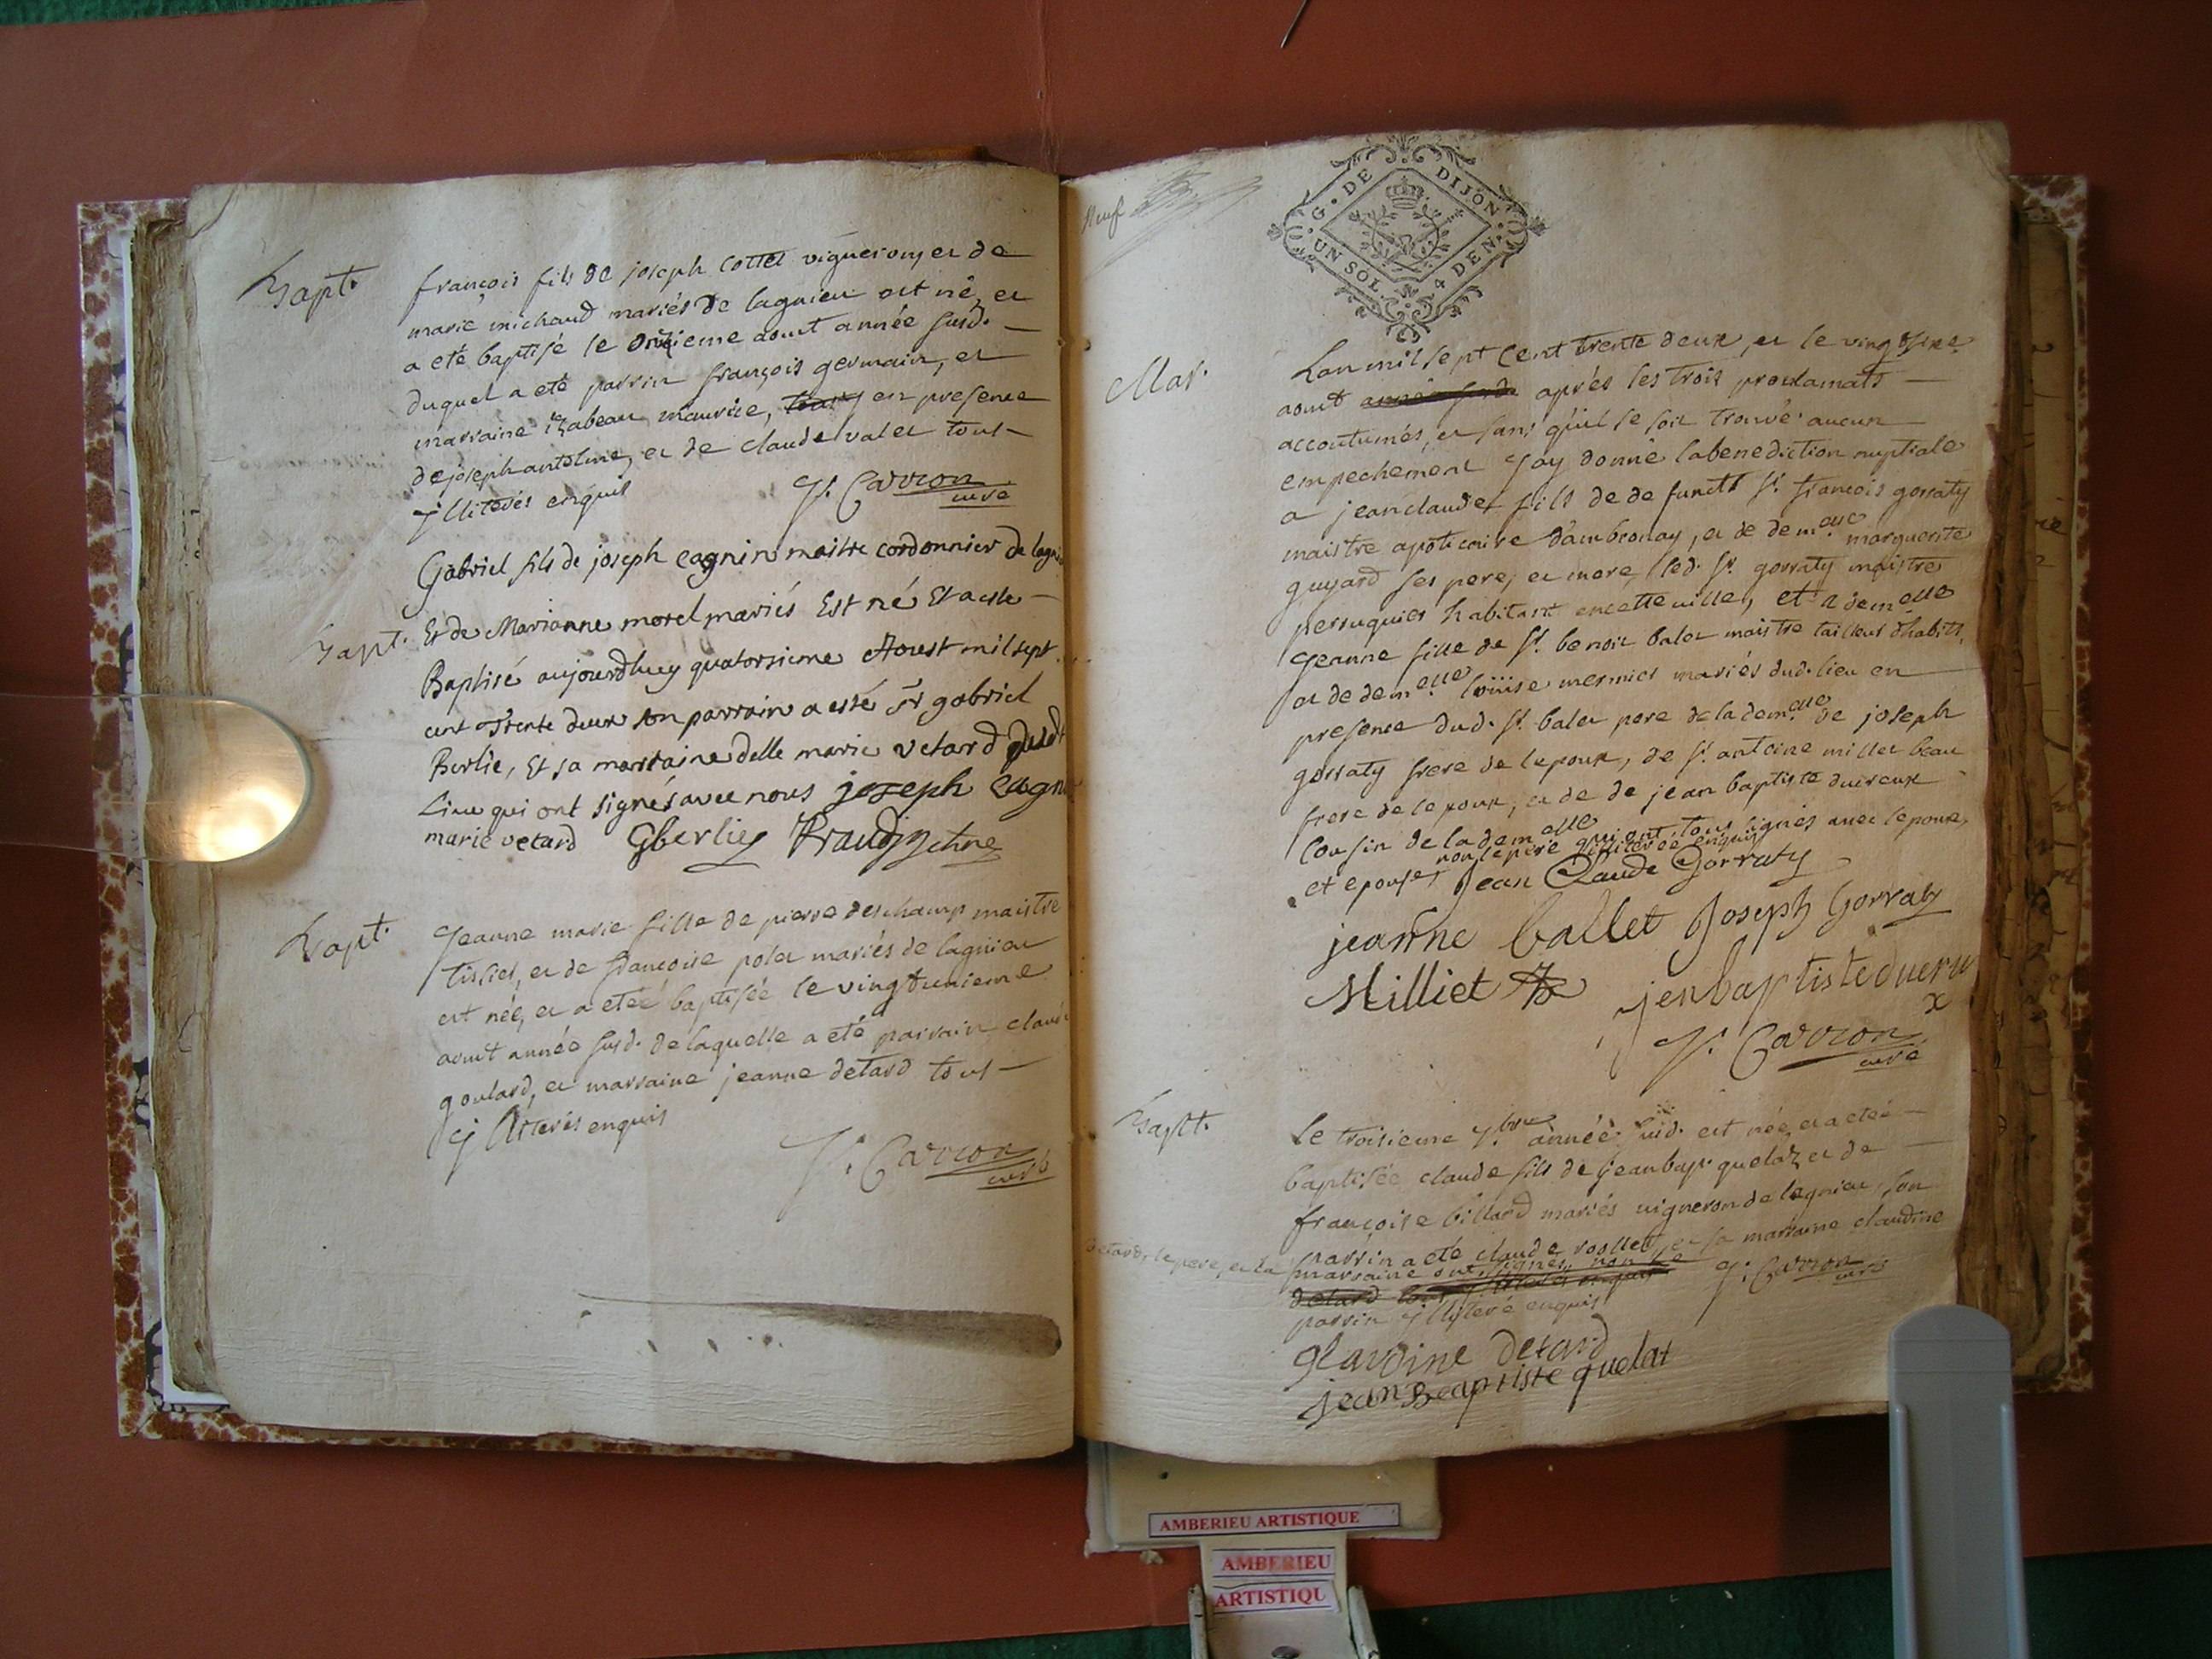 Bapt.
françois fils de joseph Cottet vigneron, et de
marie michaud mariés de lagnieu est né, et
a eté baptisé le onzieme aoust année susd. —
duquel a eté parrin françois germain, et
marraine izabeau maurice, en presence
de joseph antoine, et de claude valet tous
illiterés enquis
J. Carron
curé
Bapt.
Gabriel fils de joseph cagnin maitre cordonnier de lagni
Et de Marianne morel mariés Est né Et a esté —
Baptisé aujourdhuy quatorsieme Aoust mil sept
cent Trente deux son parrain a esté Sr gabriel
Berlie, Et sa marraine delle marie vetard dudt
Lieu qui ont signés avec nous joseph cagni
marie vetard Gberlie
Bapt.
Jeanne marie fille de pierre deschamps maistre
tissier, et de francoise polet mariés de lagnieu
est née, et a eteé baptisée le vingt unieme
aoust année susd. de laquelle a eté parrain claude
goulard, et marraine jeanne detard tous —
illiterés enquis
J. Carron
curé
Neuf
G. DE DIJON
UN SOL. 4 DEN.
Mar.
Lan mil sept Cent trente deux, et le vingt
aoust année susd. aprés les trois proclamats —
accoutumés, et sans quil se soit trouvé aucun —
empechement Jay donné la benediction nuptiale
a jean claude fils de defunct Sr. francois gorraty
maistre apoticaire dambronay, et de demelle marguerite
guyard ses pere, et mere, led. Sr. gorraty maistre
perruquier habitant en cette ville, et a demelle
Jeanne fille de Sr. benoit balet maistre tailleur dhabits,
et de demelle louise mermier mariés dud. lieu en
presence dud. Sr. balet pere de la demelle de joseph
gorraty frere de lepoux, de Sr. antoine millet beau
frere de lepoux, et de de jean baptiste ducreux
Cousin de la demelle qui ont tous signés avec lepoux,
non le pere illiteré enquis
et epouse, Jean Claude Gorraty
jeanne ballet Joseph Gorraty
Milliet jenbaptisteducru
x
J. Carron
curé
Bapt.
Le troisieme 7.bre année susd. est née, et a eteé —
baptisée claude fils de Jean bap. quelaz, et de —
françoise billard mariés vigneron de lagnieu, son
parrin a eté claude roollet, et sa marraine claudine
detard, le pere, et la marraine ont signés, non le
detard tous illiterés enquis
parrin illiteré enquis
J. Carron
curé
glaudine detard
jean Baptiste quelat
AMBERIEU ARTISTIQUE
AMBERIEU
ARTISTIQU